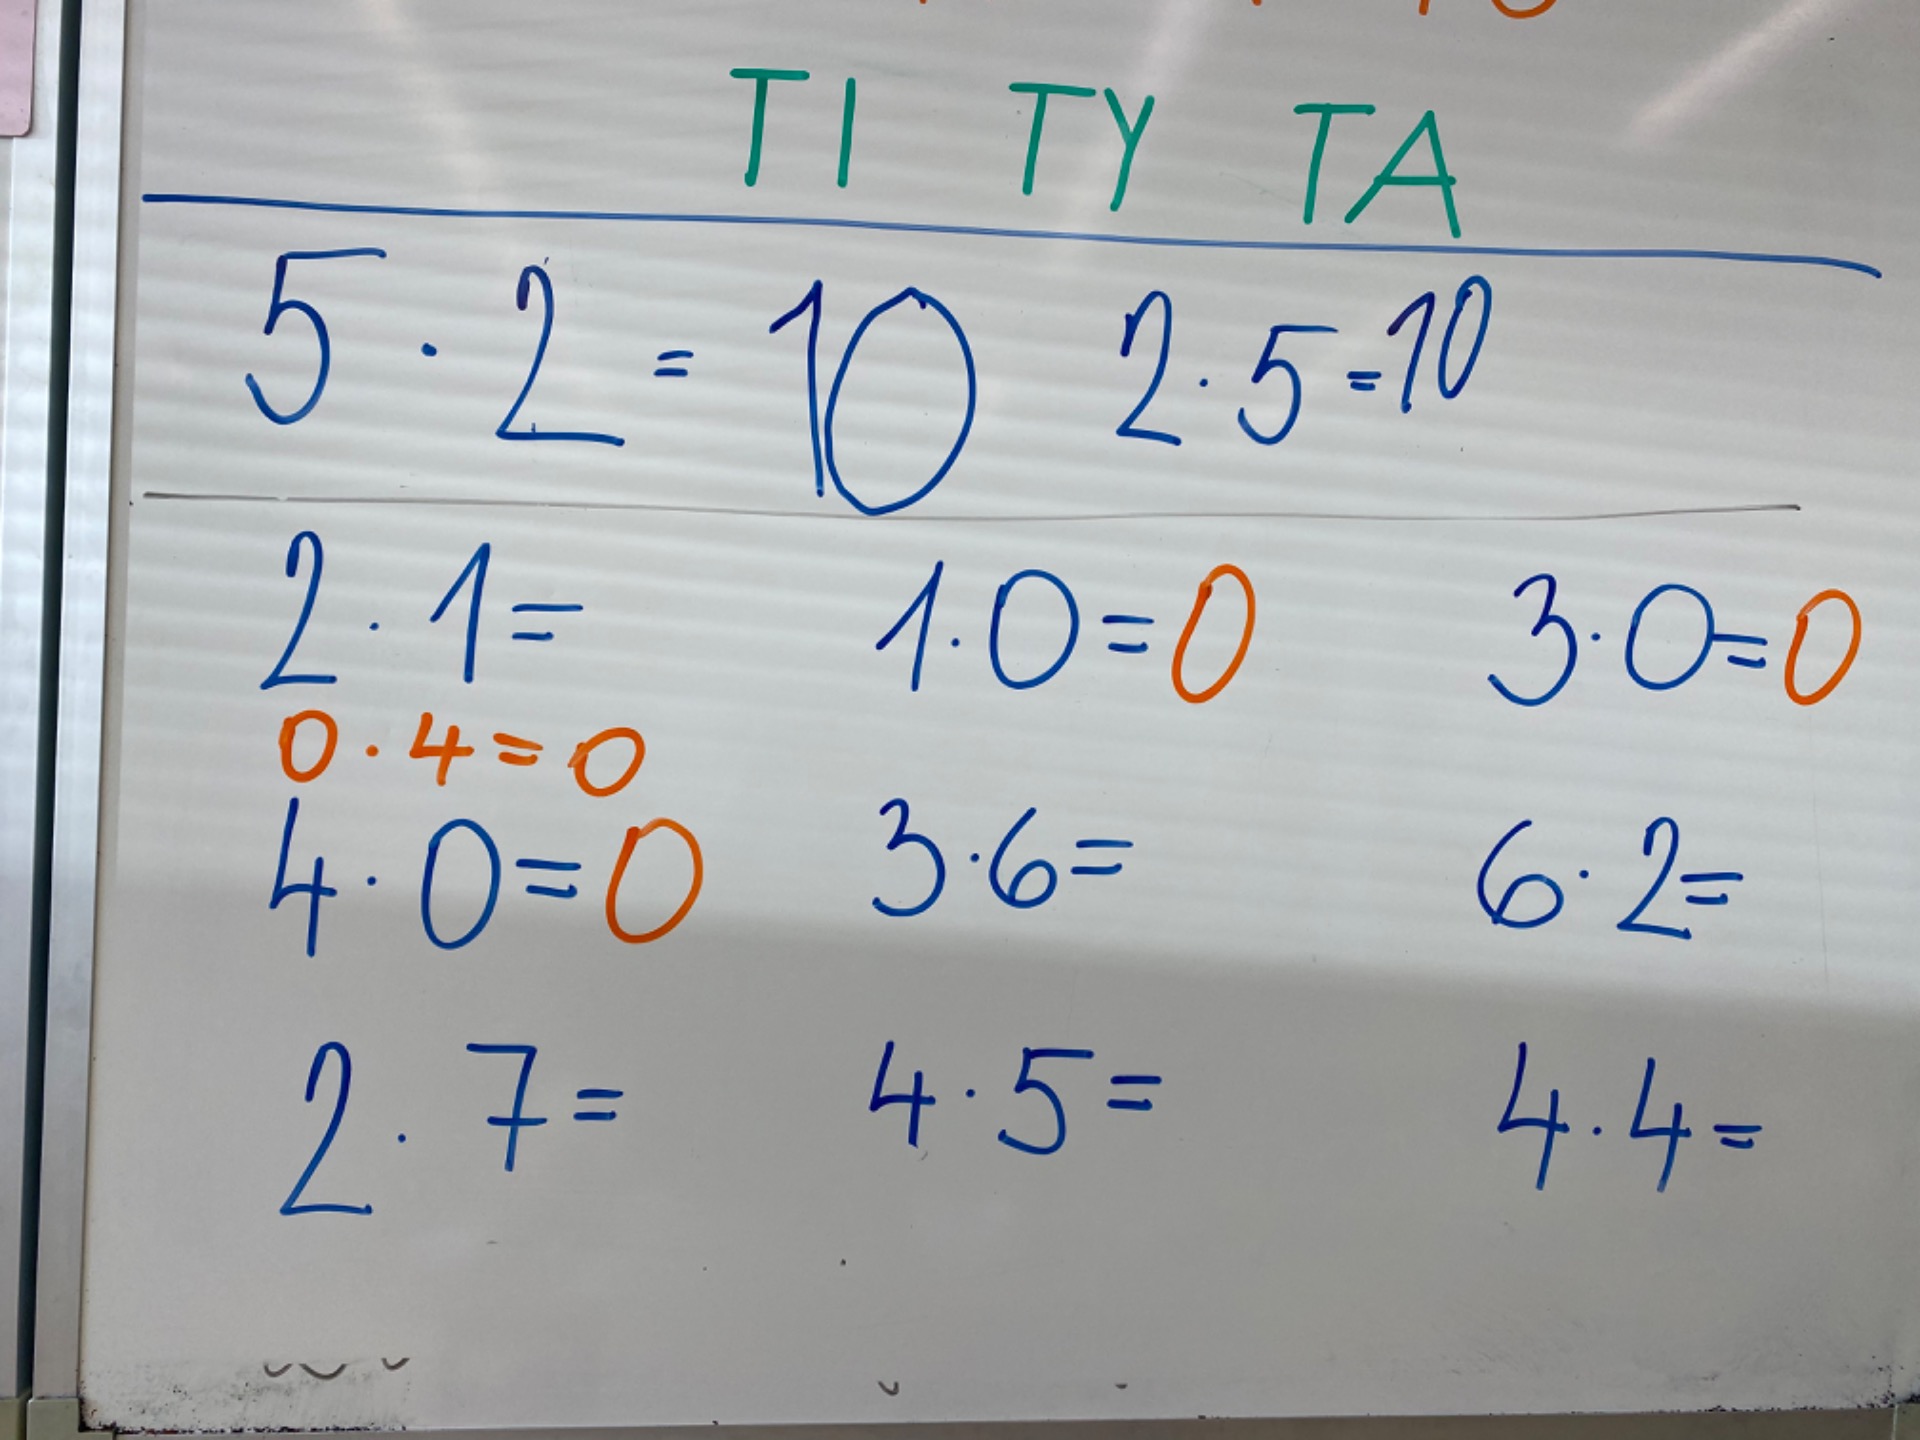 TI TY TA
5 · 2 = 10 2 · 5 = 10
2 · 1 = 1 · 0 = 0 3 · 0 = 0
0 · 4 = 0
4 · 0 = 0 3 · 6 = 6 · 2 =
2 · 7 = 4 · 5 = 4 · 4 =